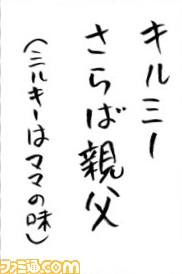 キルミー
さらば親父
（ミルキーはママの味）
ファミ通.com